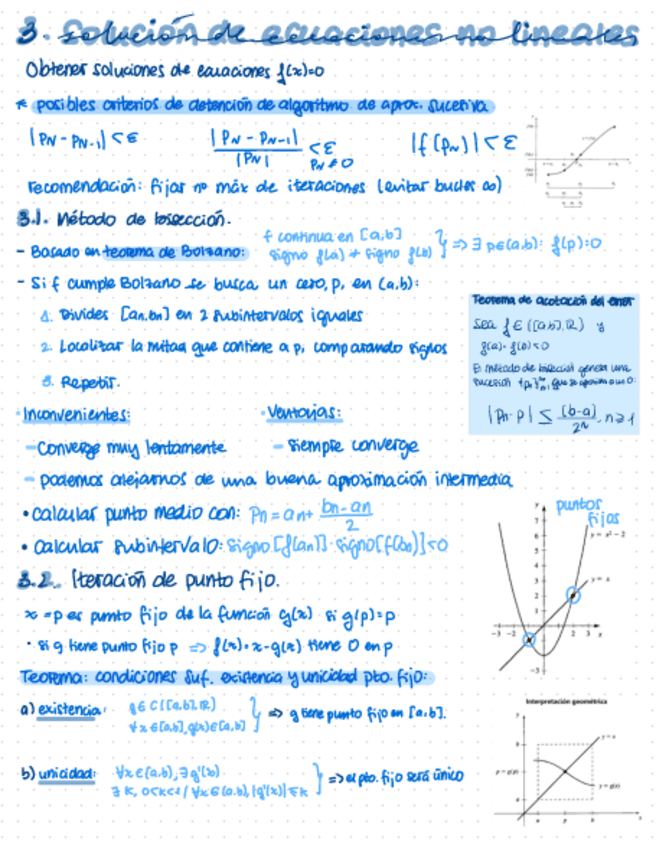 3. Solución de ecuaciones no lineales
Obtener soluciones de ecuaciones f(x)=0
* posibles criterios de detención de algoritmo de aprox. sucesiva
|PN - PN-1| < ε   |PN - PN-1| / |PN| < ε   PN ≠ 0   |f(PN)| < ε
recomendación: fijar nº máx de iteraciones (evitar bucles ∞)
3.1. Método de bisección.
- Basado en teorema de Bolzano: f continua en [a,b] signo f(a) ≠ signo f(b) } => ∃ p∈(a,b): f(p)=0
- Si f cumple Bolzano se busca un cero, p, en (a,b):
1. Divides [an,bn] en 2 subintervalos iguales
2. Localizar la mitad que contiene a p, comparando signos
3. Repetir.
Teorema de acotación del error
Sea f ∈ C([a,b],R) y
f(a)·f(b)<0
El método de bisección genera una
sucesión {pn}, que se aproxima a un 0:
|Pn - p| ≤ (b-a) / 2^n, n≥1
· Inconvenientes:   · Ventajas:
- Converge muy lentamente   - Siempre converge
- podemos alejarnos de una buena aproximación intermedia
• calcular punto medio con: Pn = an + bn-an / 2
• Calcular subintervalo: signo[f(an)]·signo[f(bn)]<0
puntos
fijos
y = x² - 2
y = x
3.2. Iteración de punto fijo.
x=p es punto fijo de la función g(x) si g(p)=p
· si g tiene punto fijo p => f(x)=x-g(x) tiene 0 en p
Teorema: condiciones suf. existencia y unicidad pto. fijo:
a) existencia: g∈C([a,b],R) ∀x∈[a,b], g(x)∈[a,b] } => g tiene punto fijo en [a,b].
b) unicidad: ∀x∈(a,b), ∃g'(x) ∃ K, 0<K<1 / ∀x∈(a,b), |g'(x)| ≤ K } => el pto. fijo será único
Interpretación geométrica
y
y = x
p = g(p)
y = g(x)
a p b x